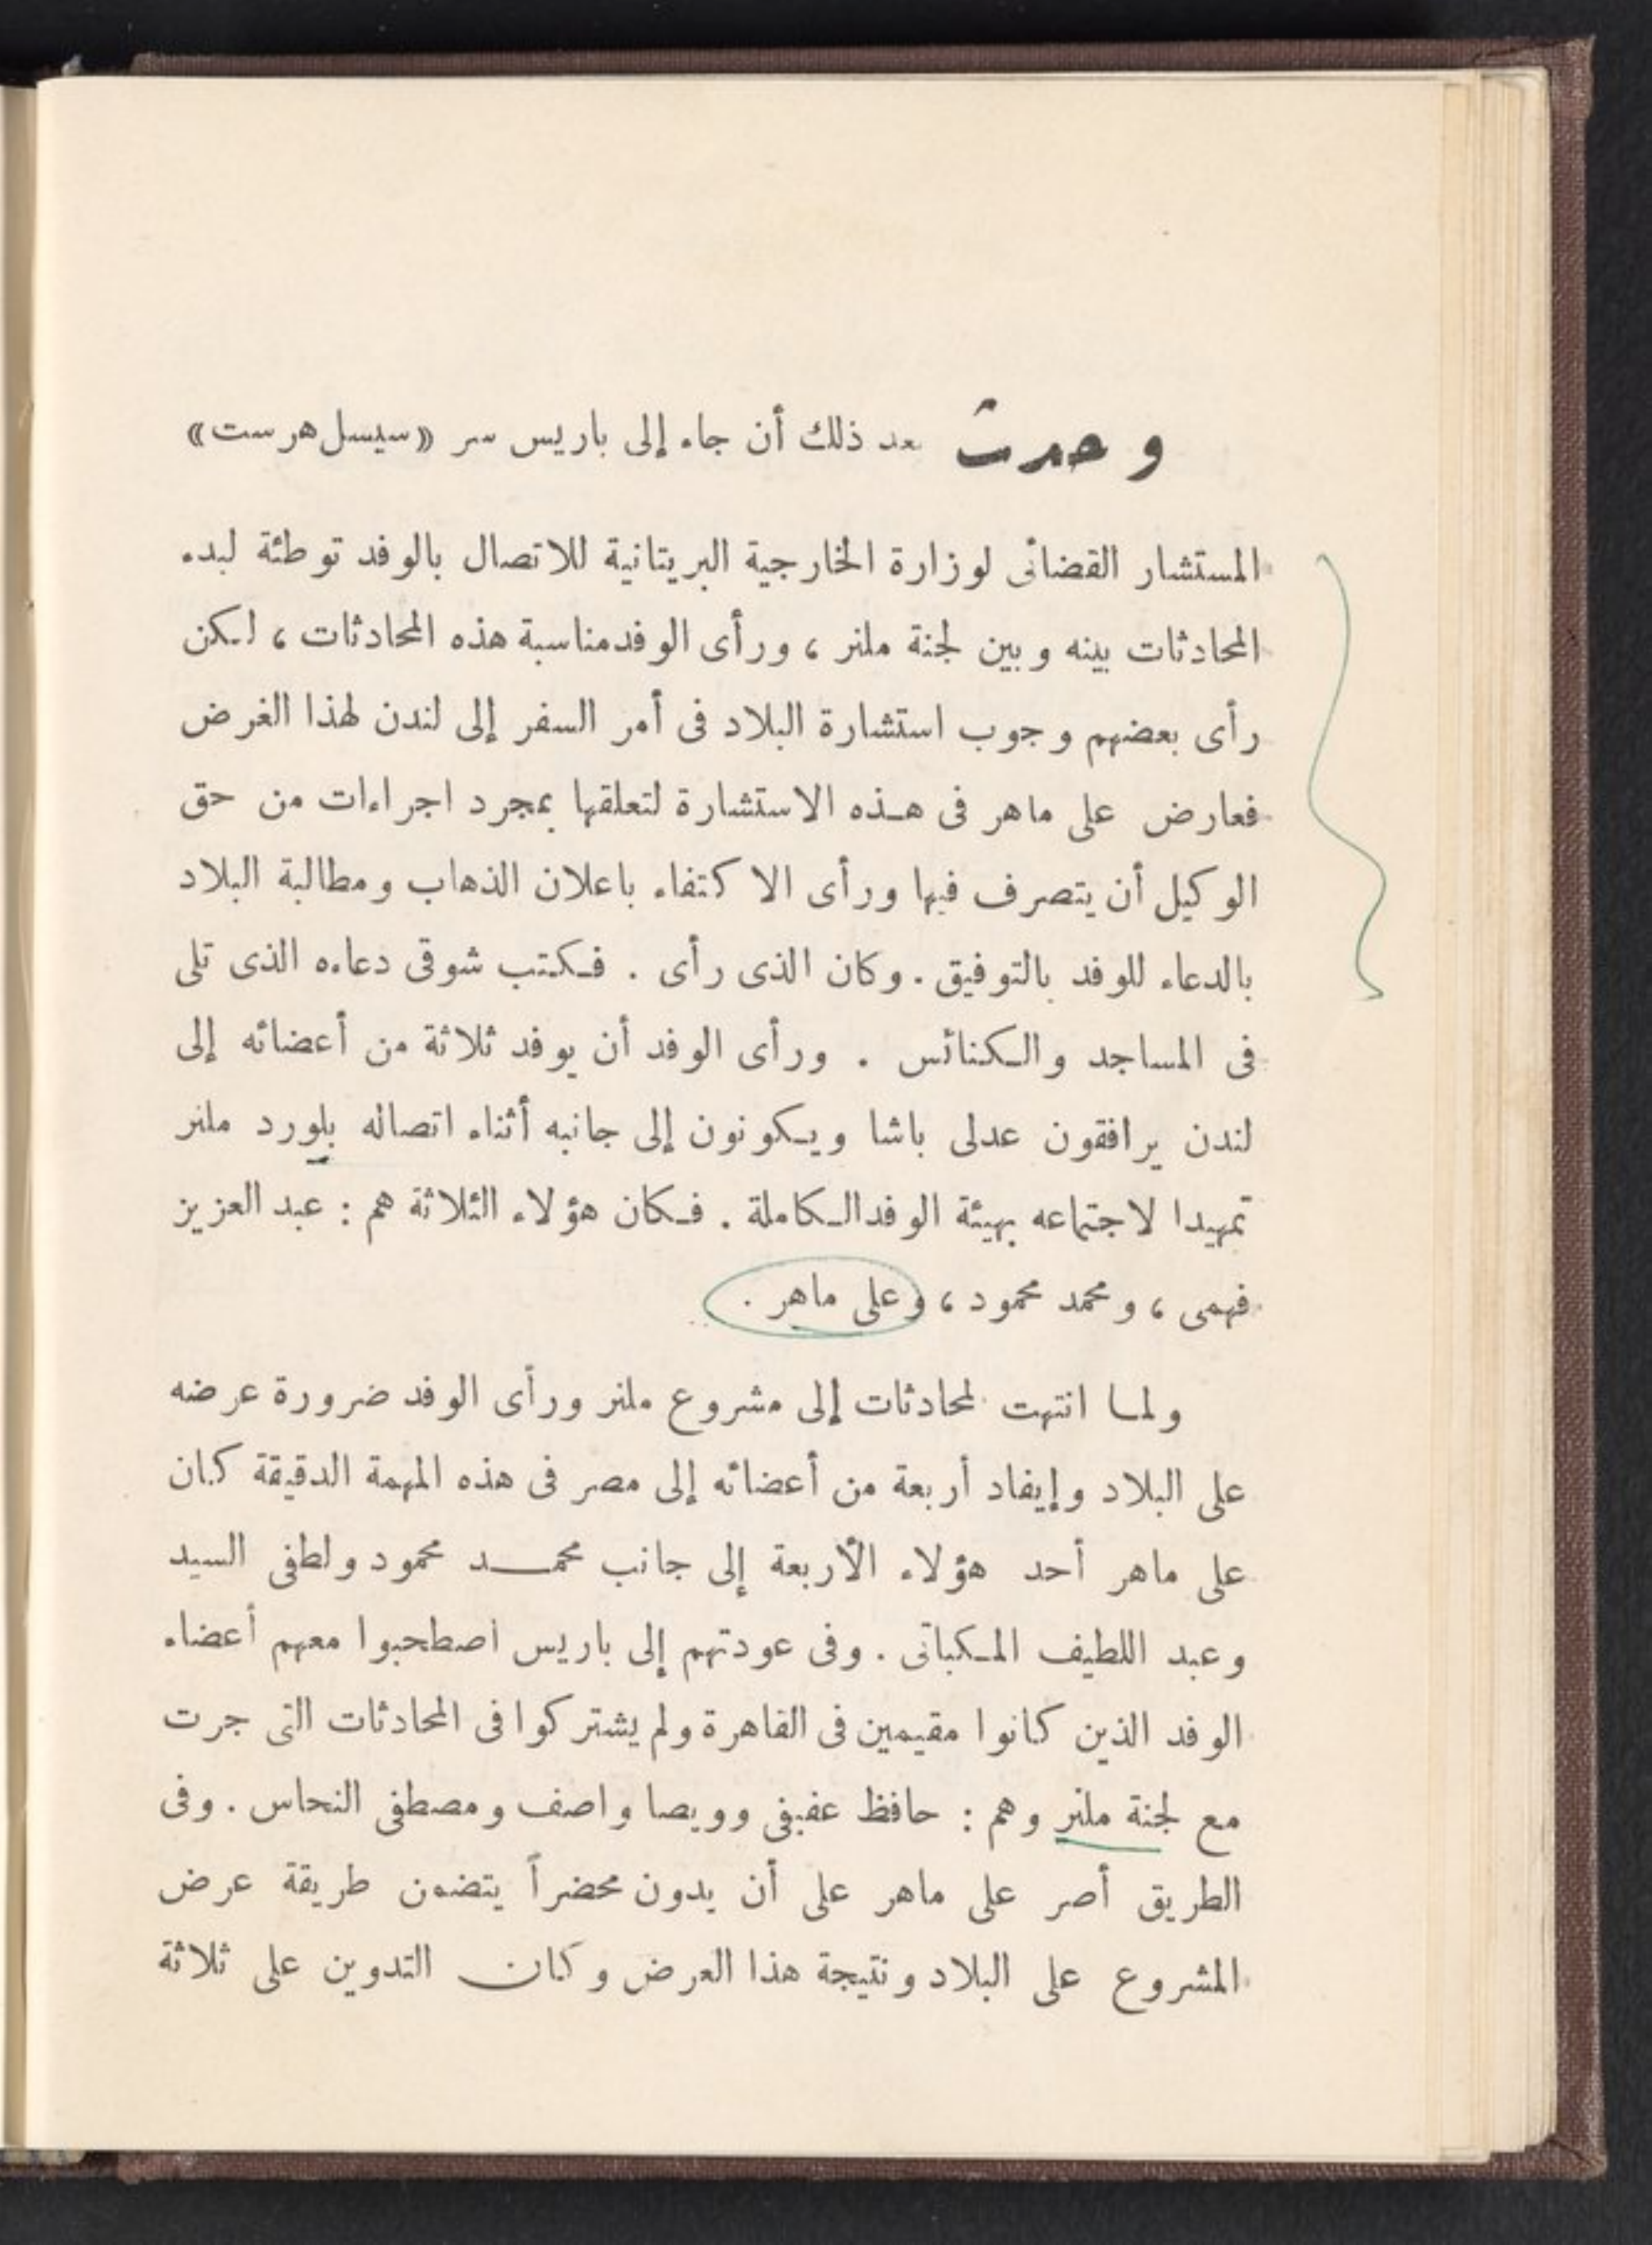 وحدث بعد ذلك أن جاء إلى باريس سر «سيسل هرست»
المستشار القضائى لوزارة الخارجية البريتانية للاتصال بالوفد توطئة لبدء
المحادثات بينه وبين لجنة ملنر ، ورأى الوفد مناسبة هذه المحادثات ، لكن
رأى بعضهم وجوب استشارة البلاد فى أمر السفر إلى لندن لهذا الغرض
فعارض على ماهر فى هذه الاستشارة لتعلقها بمجرد اجراءات من حق
الوكيل أن يتصرف فيها ورأى الاكتفاء باعلان الذهاب ومطالبة البلاد
بالدعاء للوفد بالتوفيق . وكان الذى رأى . فكتب شوقى دعاءه الذى تلى
فى المساجد والكنائس . ورأى الوفد أن يوفد ثلاثة من أعضائه إلى
لندن يرافقون عدلى باشا ويكونون إلى جانبه أثناء اتصاله بلورد ملنر
تمهيدا لاجتماعه بهيئة الوفد الكاملة . فكان هؤلاء الثلاثة هم : عبد العزيز
فهمى ، ومحمد محمود ، وعلى ماهر .
ولما انتهت المحادثات إلى مشروع ملنر ورأى الوفد ضرورة عرضه
على البلاد وإيفاد أربعة من أعضائه إلى مصر فى هذه المهمة الدقيقة كان
على ماهر أحد هؤلاء الأربعة إلى جانب محمد محمود ولطفى السيد
وعبد اللطيف المكباتى . وفى عودتهم إلى باريس اصطحبوا معهم أعضاء
الوفد الذين كانوا مقيمين فى القاهرة ولم يشتركوا فى المحادثات التى جرت
مع لجنة ملنر وهم : حافظ عفيفى وويصا واصف ومصطفى النحاس . وفى
الطريق أصر على ماهر على أن يدون محضراً يتضمن طريقة عرض
المشروع على البلاد ونتيجة هذا العرض وكان التدوين على ثلاثة